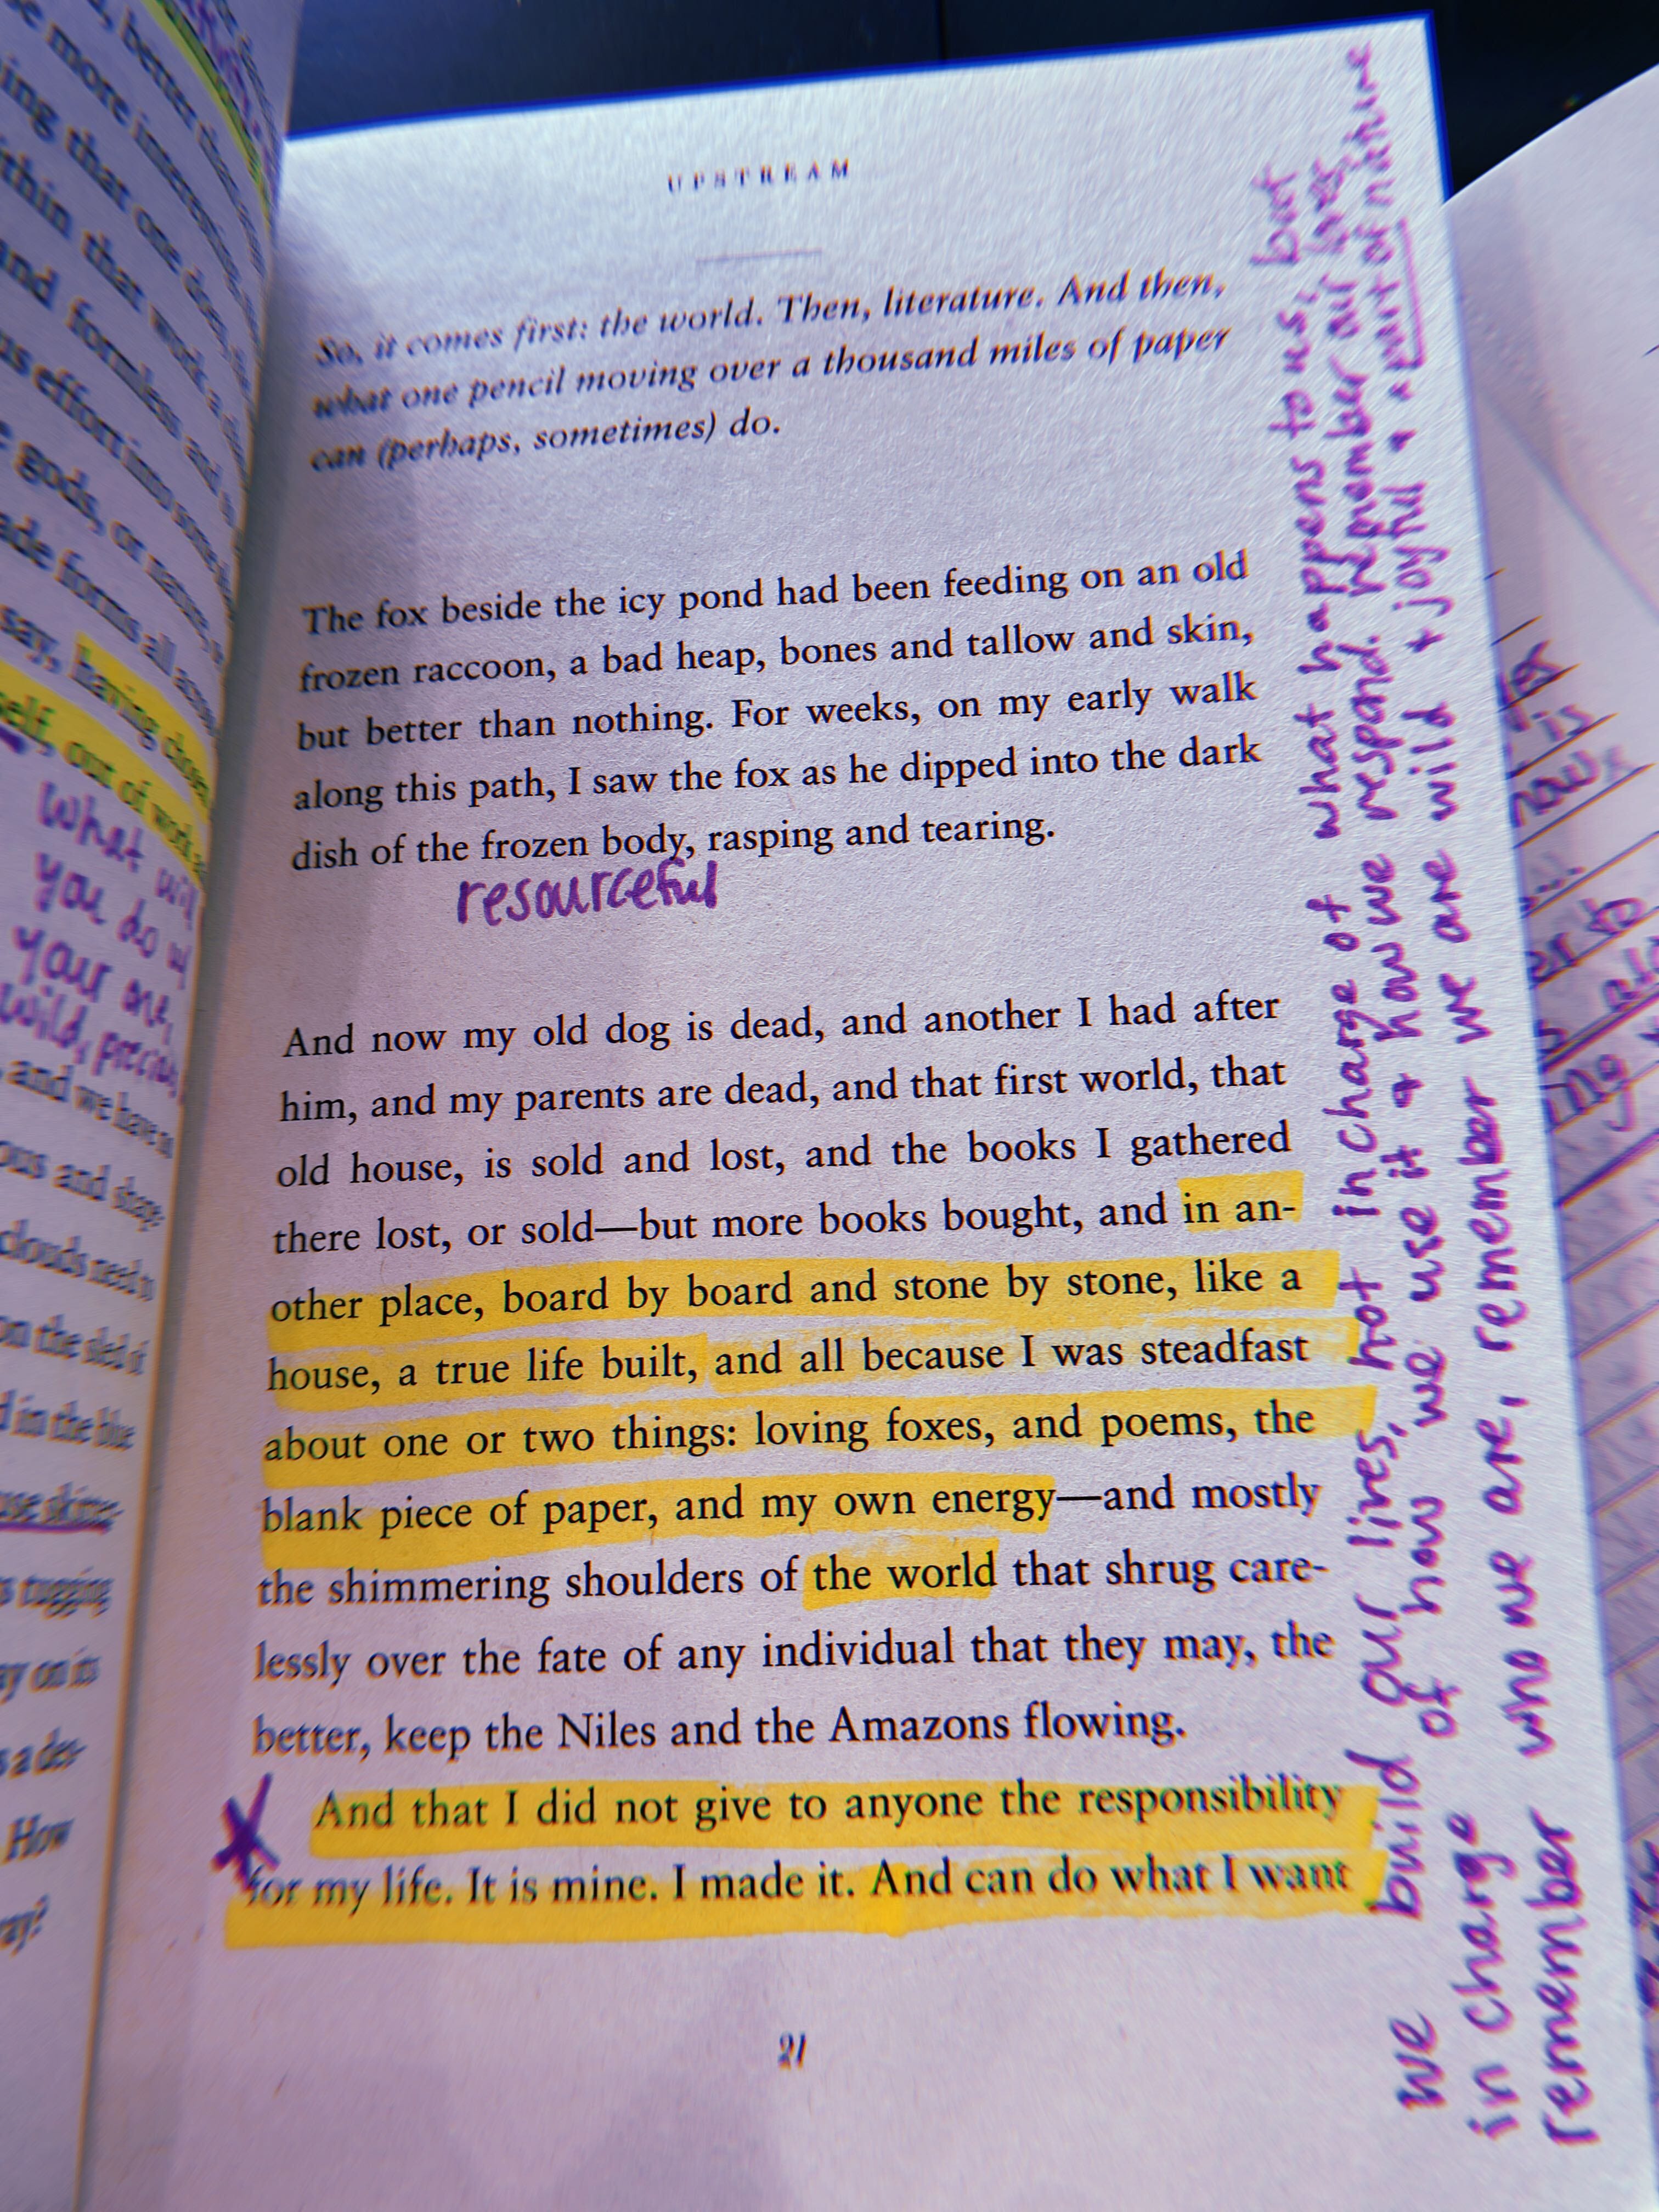 UPSTREAM
So, it comes first: the world. Then, literature. And then,
what one pencil moving over a thousand miles of paper
can (perhaps, sometimes) do.
The fox beside the icy pond had been feeding on an old
frozen raccoon, a bad heap, bones and tallow and skin,
but better than nothing. For weeks, on my early walk
along this path, I saw the fox as he dipped into the dark
dish of the frozen body, rasping and tearing.
resourceful
And now my old dog is dead, and another I had after
him, and my parents are dead, and that first world, that
old house, is sold and lost, and the books I gathered
there lost, or sold—but more books bought, and in an-
other place, board by board and stone by stone, like a
house, a true life built, and all because I was steadfast
about one or two things: loving foxes, and poems, the
blank piece of paper, and my own energy—and mostly
the shimmering shoulders of the world that shrug care-
lessly over the fate of any individual that they may, the
better, keep the Niles and the Amazons flowing.
And that I did not give to anyone the responsibility
for my life. It is mine. I made it. And can do what I want
21
we build our lives, not in charge of what happens to us, but
in charge of how we use it & how we respond. remember our lives
remember who we are, remember we are wild + joyful & a part of nature
better than
more interesting
ing that one does
thin that work a
and formless and
us effort into some
gods, or nature,
ade forms all across
say, having chosen
self, out of work
what will
you do w
your one,
wild, precious
and we have
ous and shap-
clouds need
on the sled of
d in the blue
use skims
tugging
y on its
s a des-
How
ay?
is
now